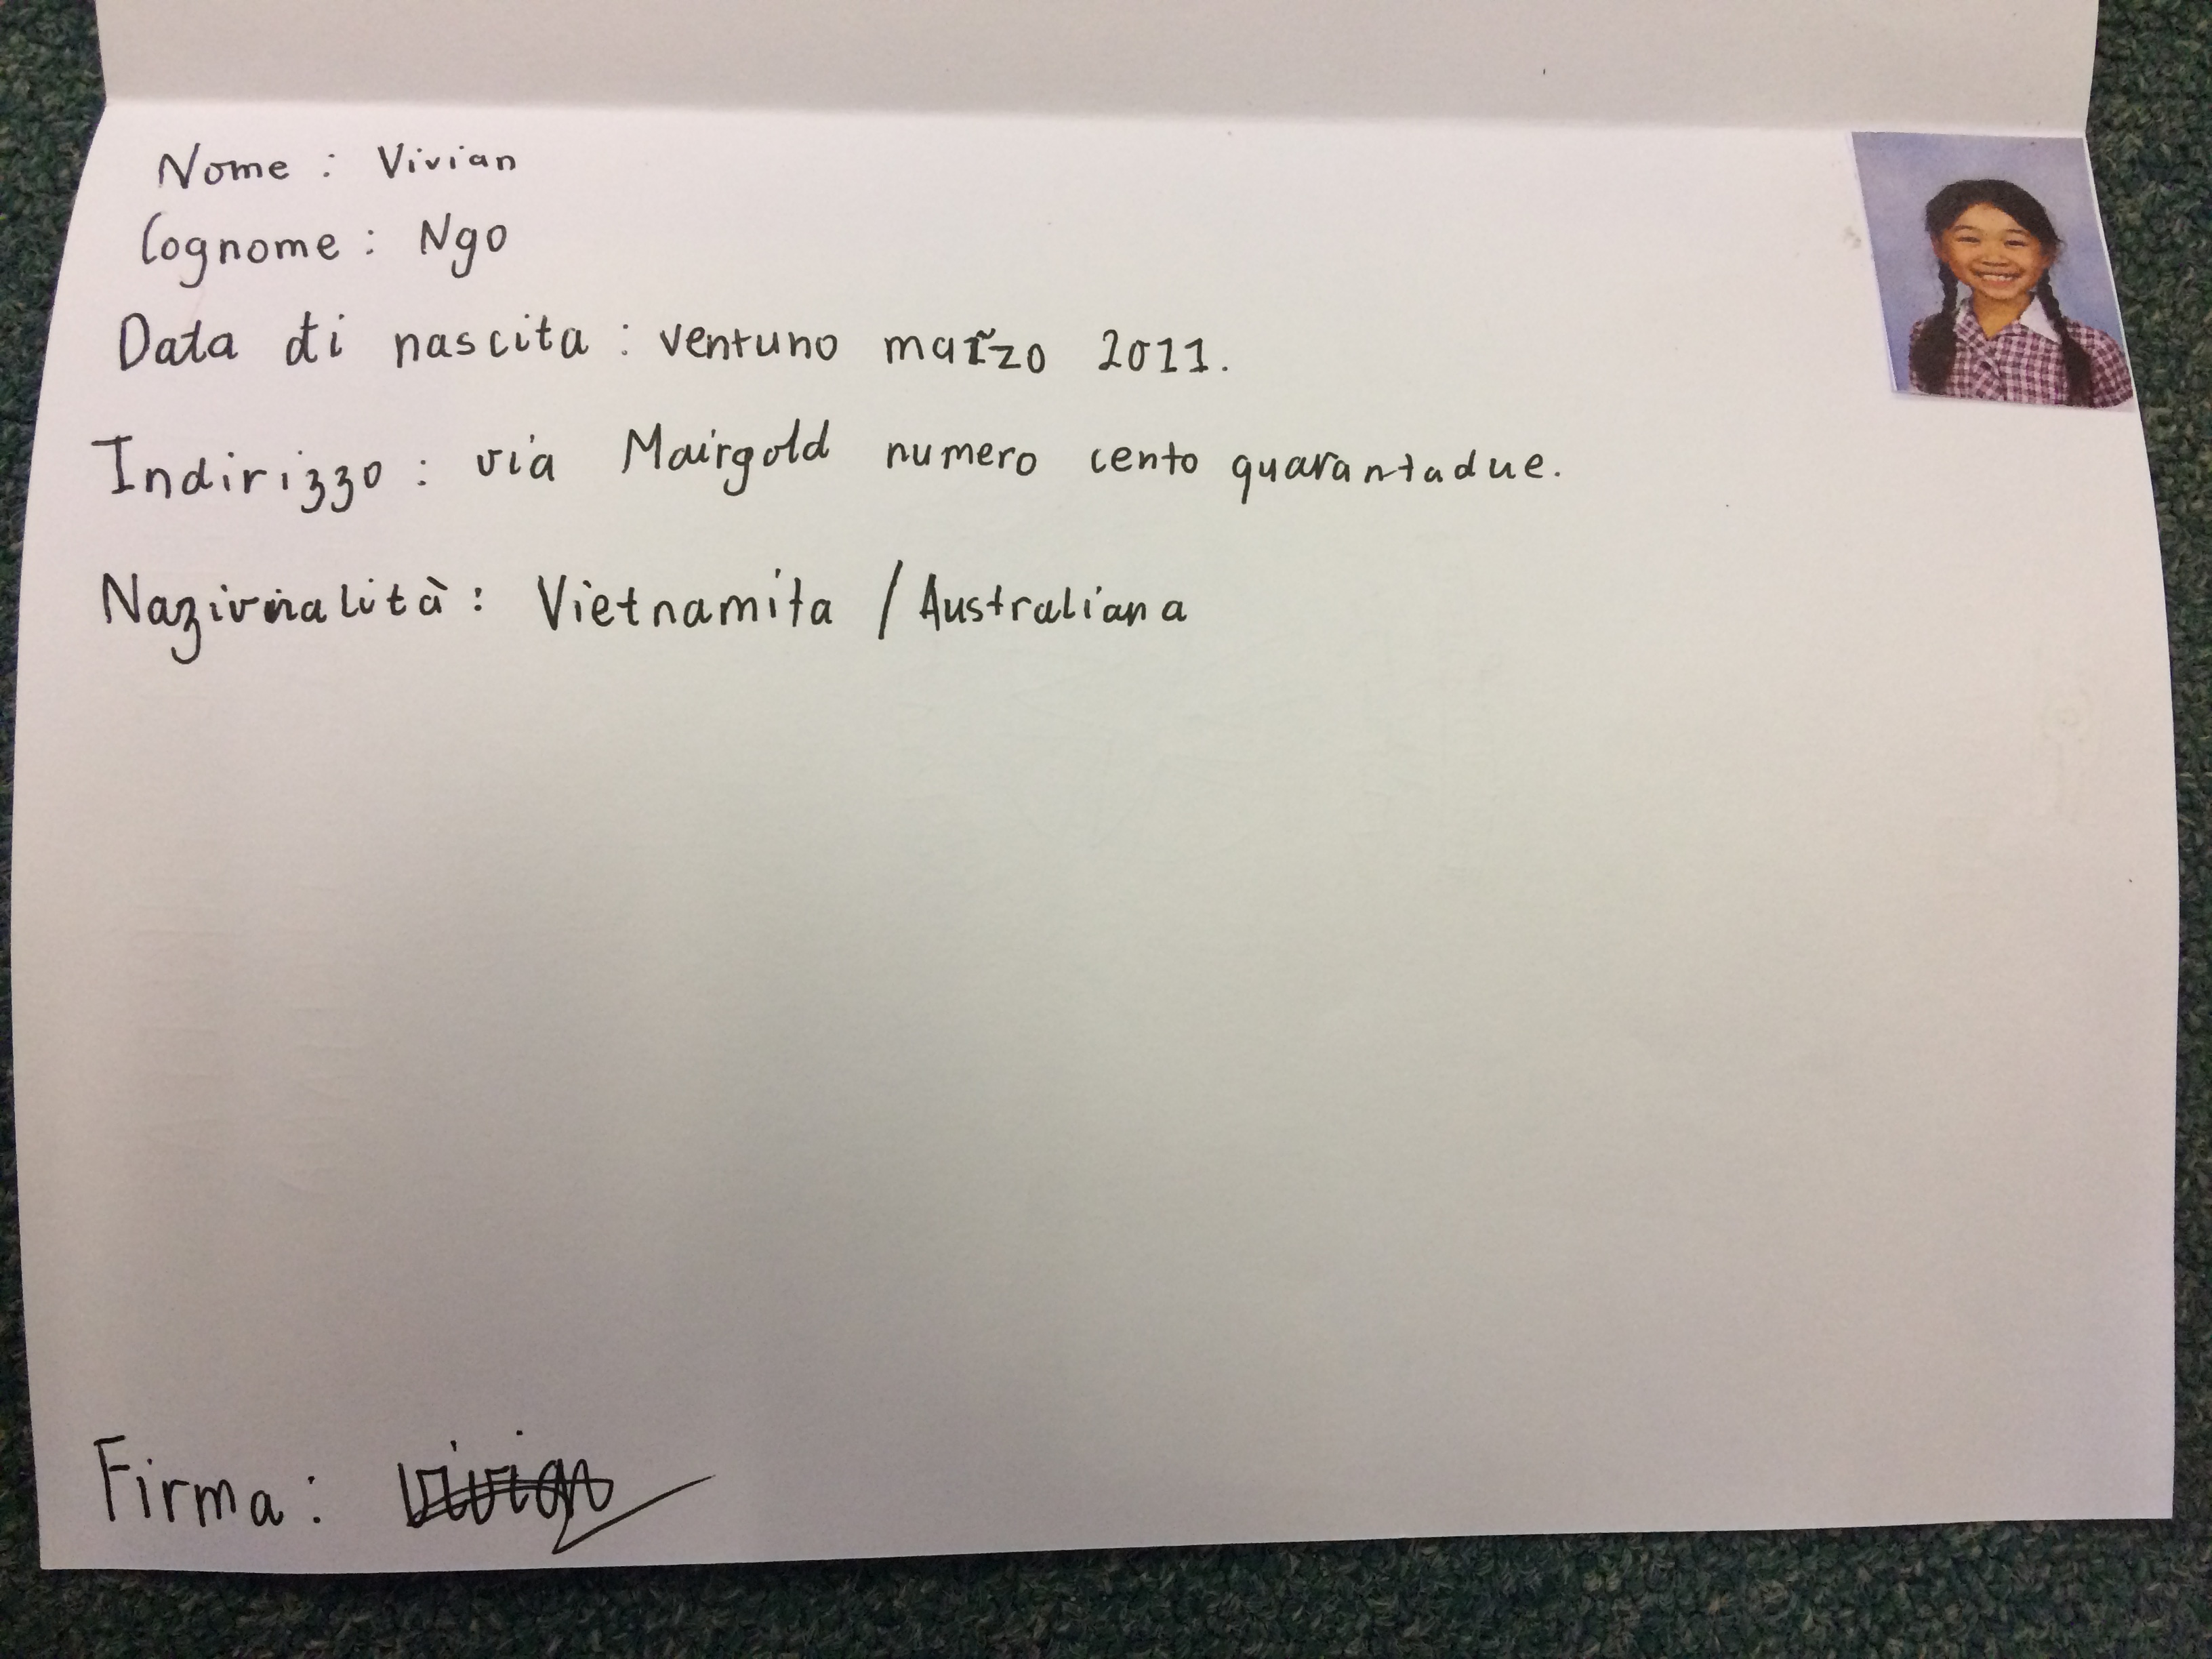 Nome : Vivian
Cognome : Ngo
Data di nascita : ventuno marzo 2011.
Indirizzo : via Mairgold numero cento quarantadue.
Nazionalità : Vietnamita / Australiana
Firma : Vivian